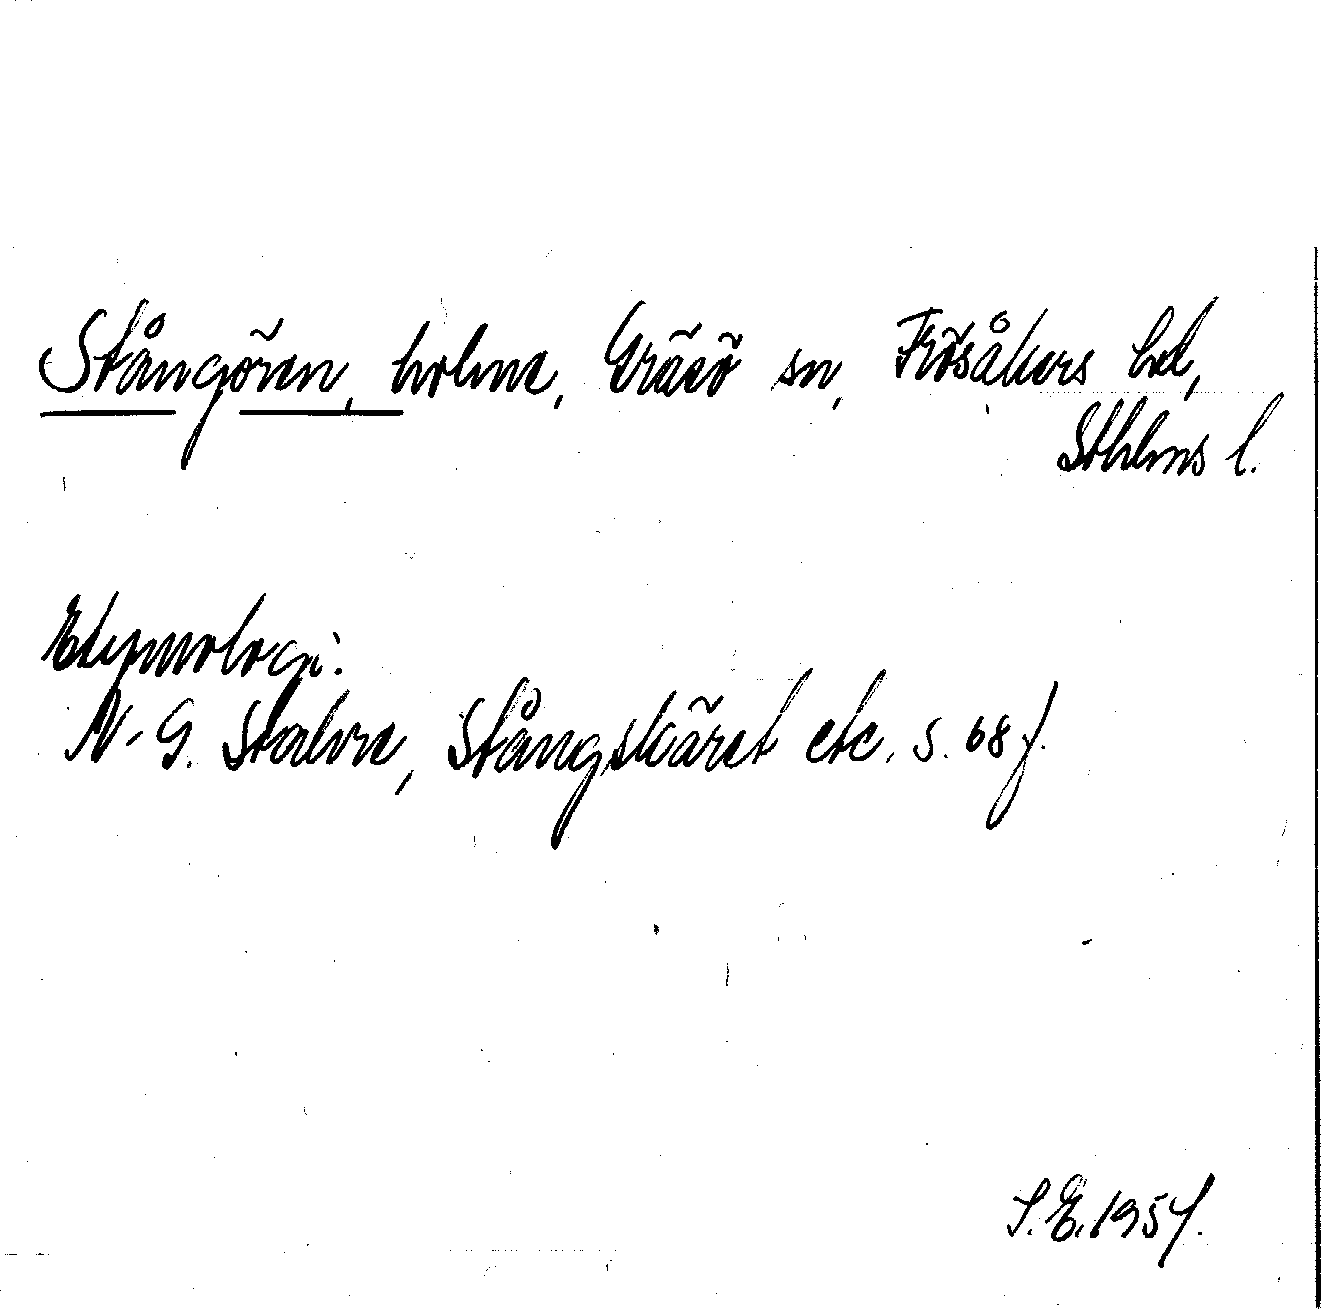 Stångören, holme, Gräsö sn, Frösåkers hd,
Sthlms l.
Etymologi:
N.-G. Stahre, Stångskäret etc. s. 68 f.
S.E. 1957.